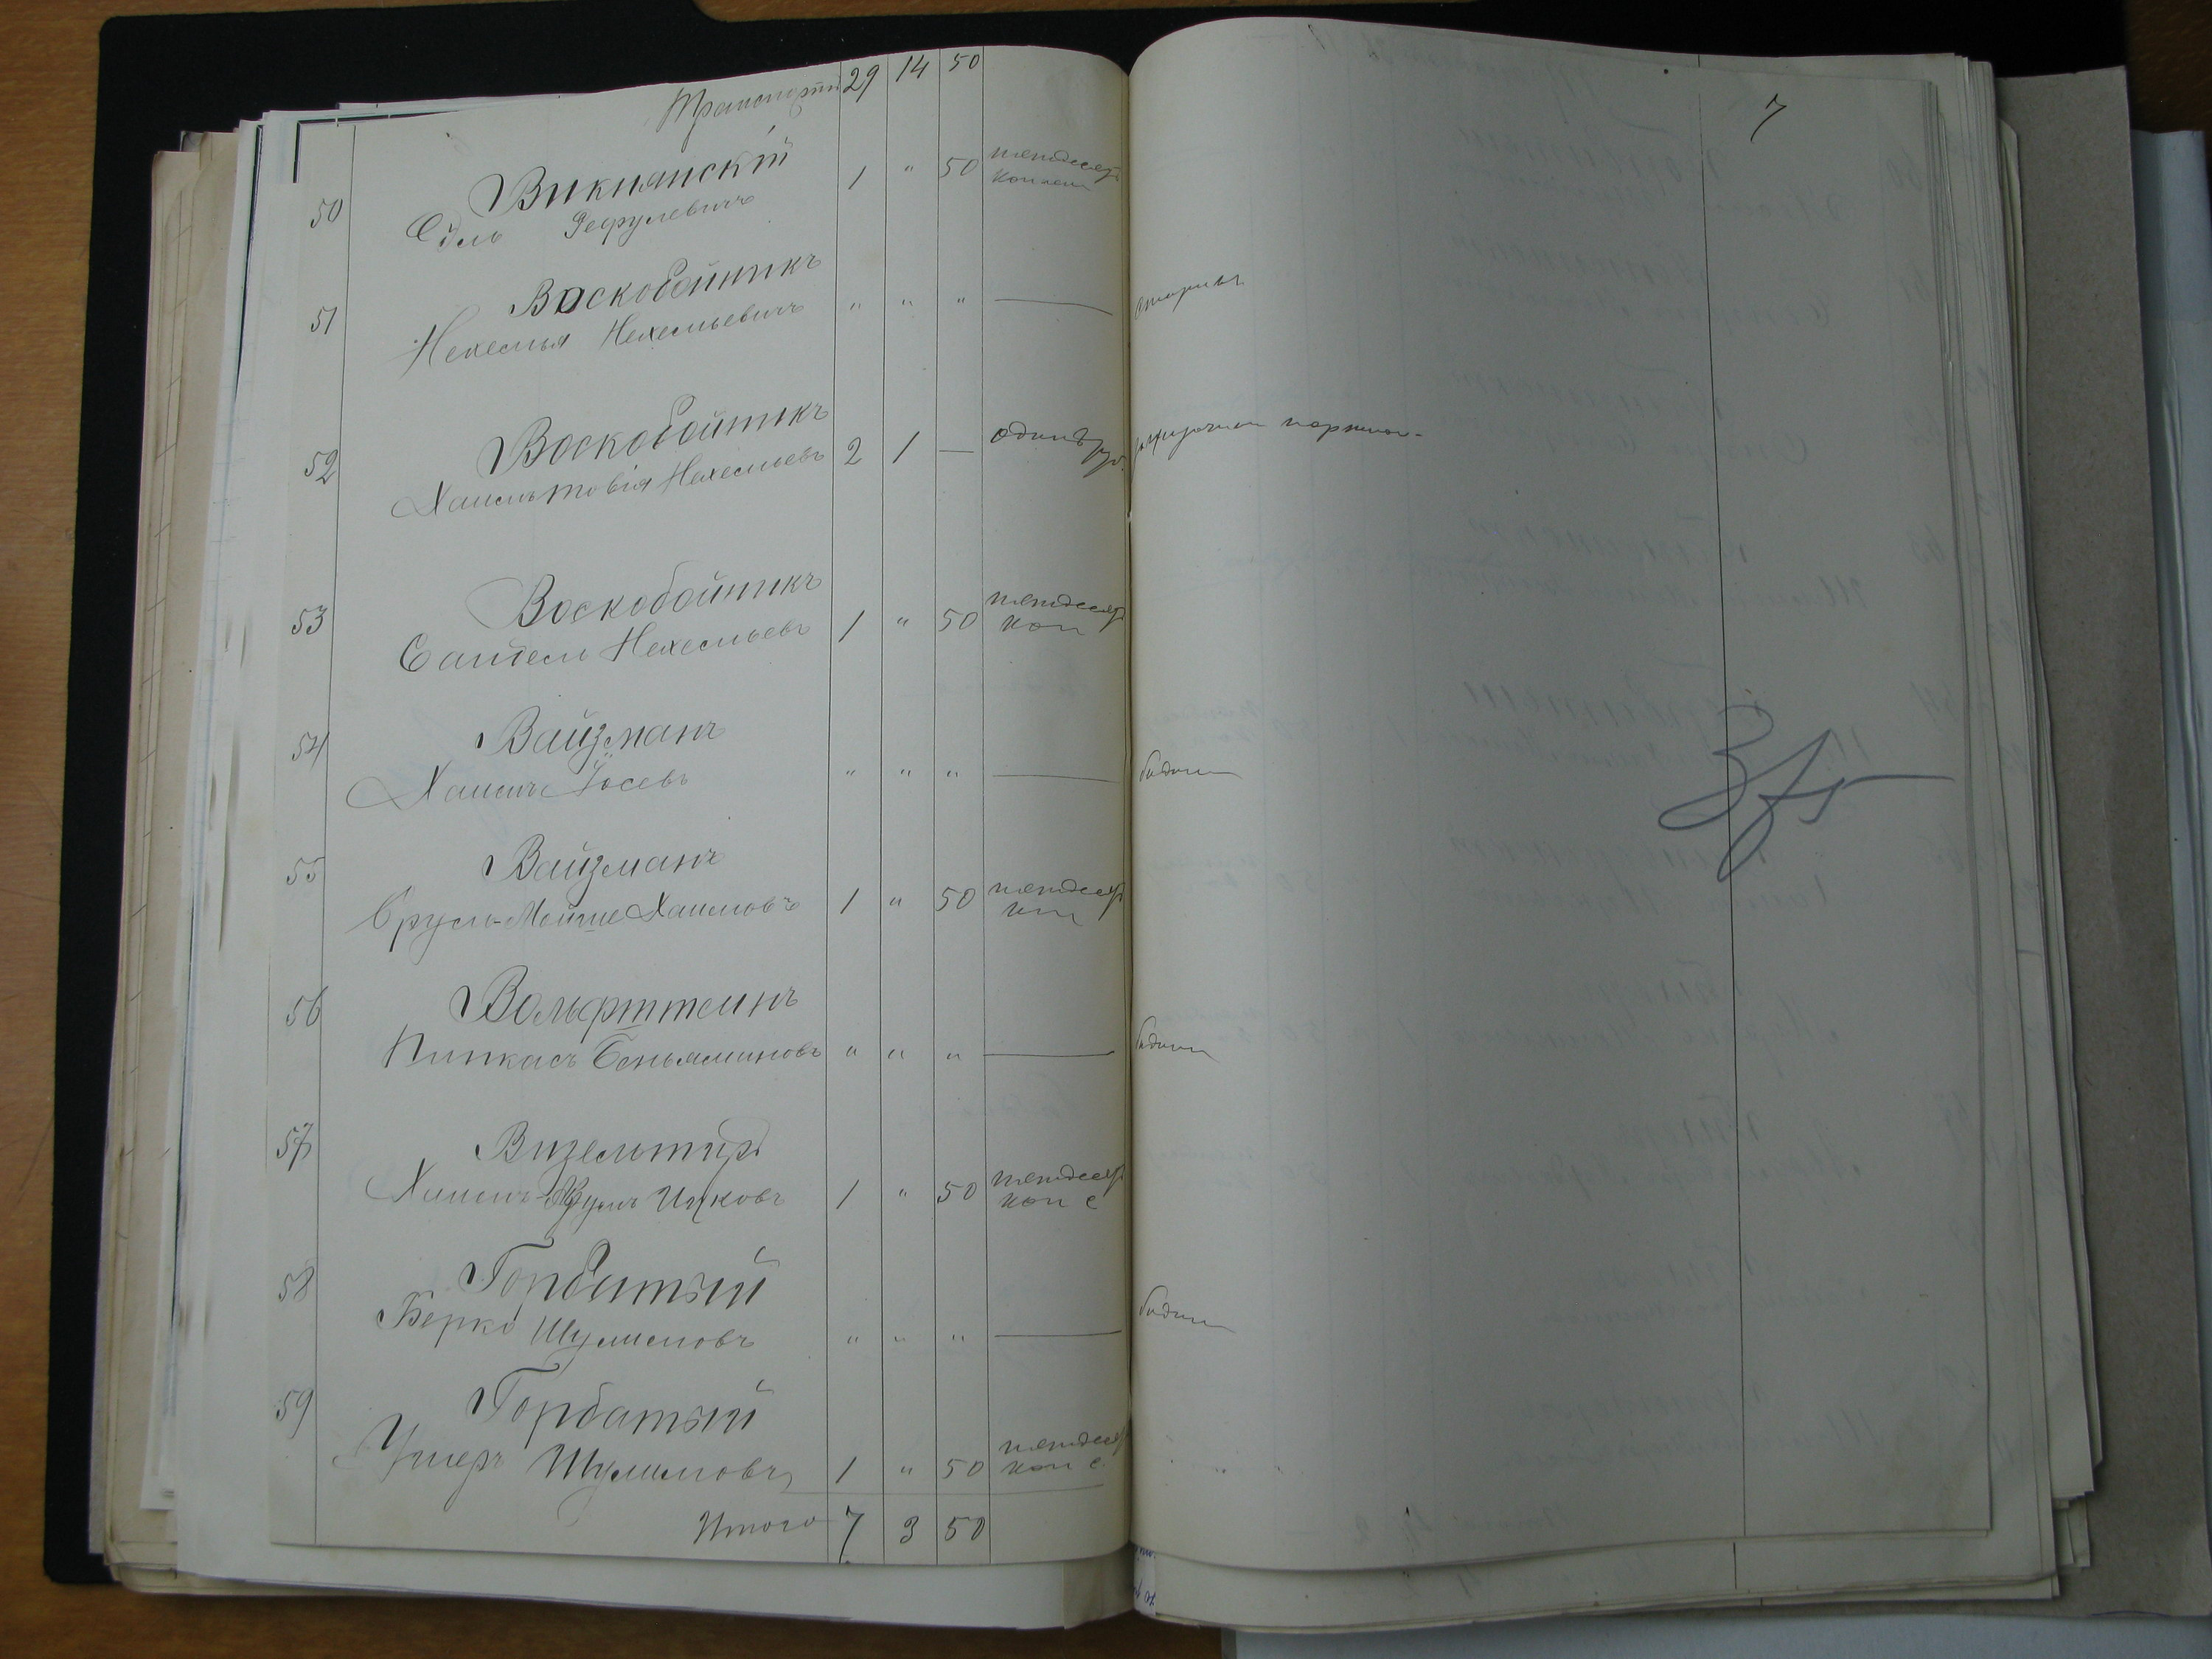 Транспортъ 29 14 50
50 Викнянскій
Сӱль Рефулевичъ 1 " 50 пятдесятъ
копѣекъ
51 Воскобойникъ
Нехемья Нехемьевичъ " " " —
52 Воскобойникъ
Хаимъ Товія Нехемьевъ 2 1 — одинъ руб.
53 Воскобойникъ
Нехемьевъ 1 " 50 пятдесятъ
коп
54 Вайзманъ
Хаимъ Іосевъ " " " —
55 Вайзманъ
Сруль-Мойше Хаимовъ 1 " 50 пятдесятъ
коп
56 Вольфштеинъ
Пинкасъ Беньяминовъ " " " —
57 Визельтиръ
Хаимъ Ицковъ 1 " 50 пятдесятъ
коп с
58 Горбатый
Берко Шулимовъ " " " —
59 Горбатый
Ушеръ Шулимовъ 1 " 50 пятдесятъ
коп с
Итого 7 3 50
7